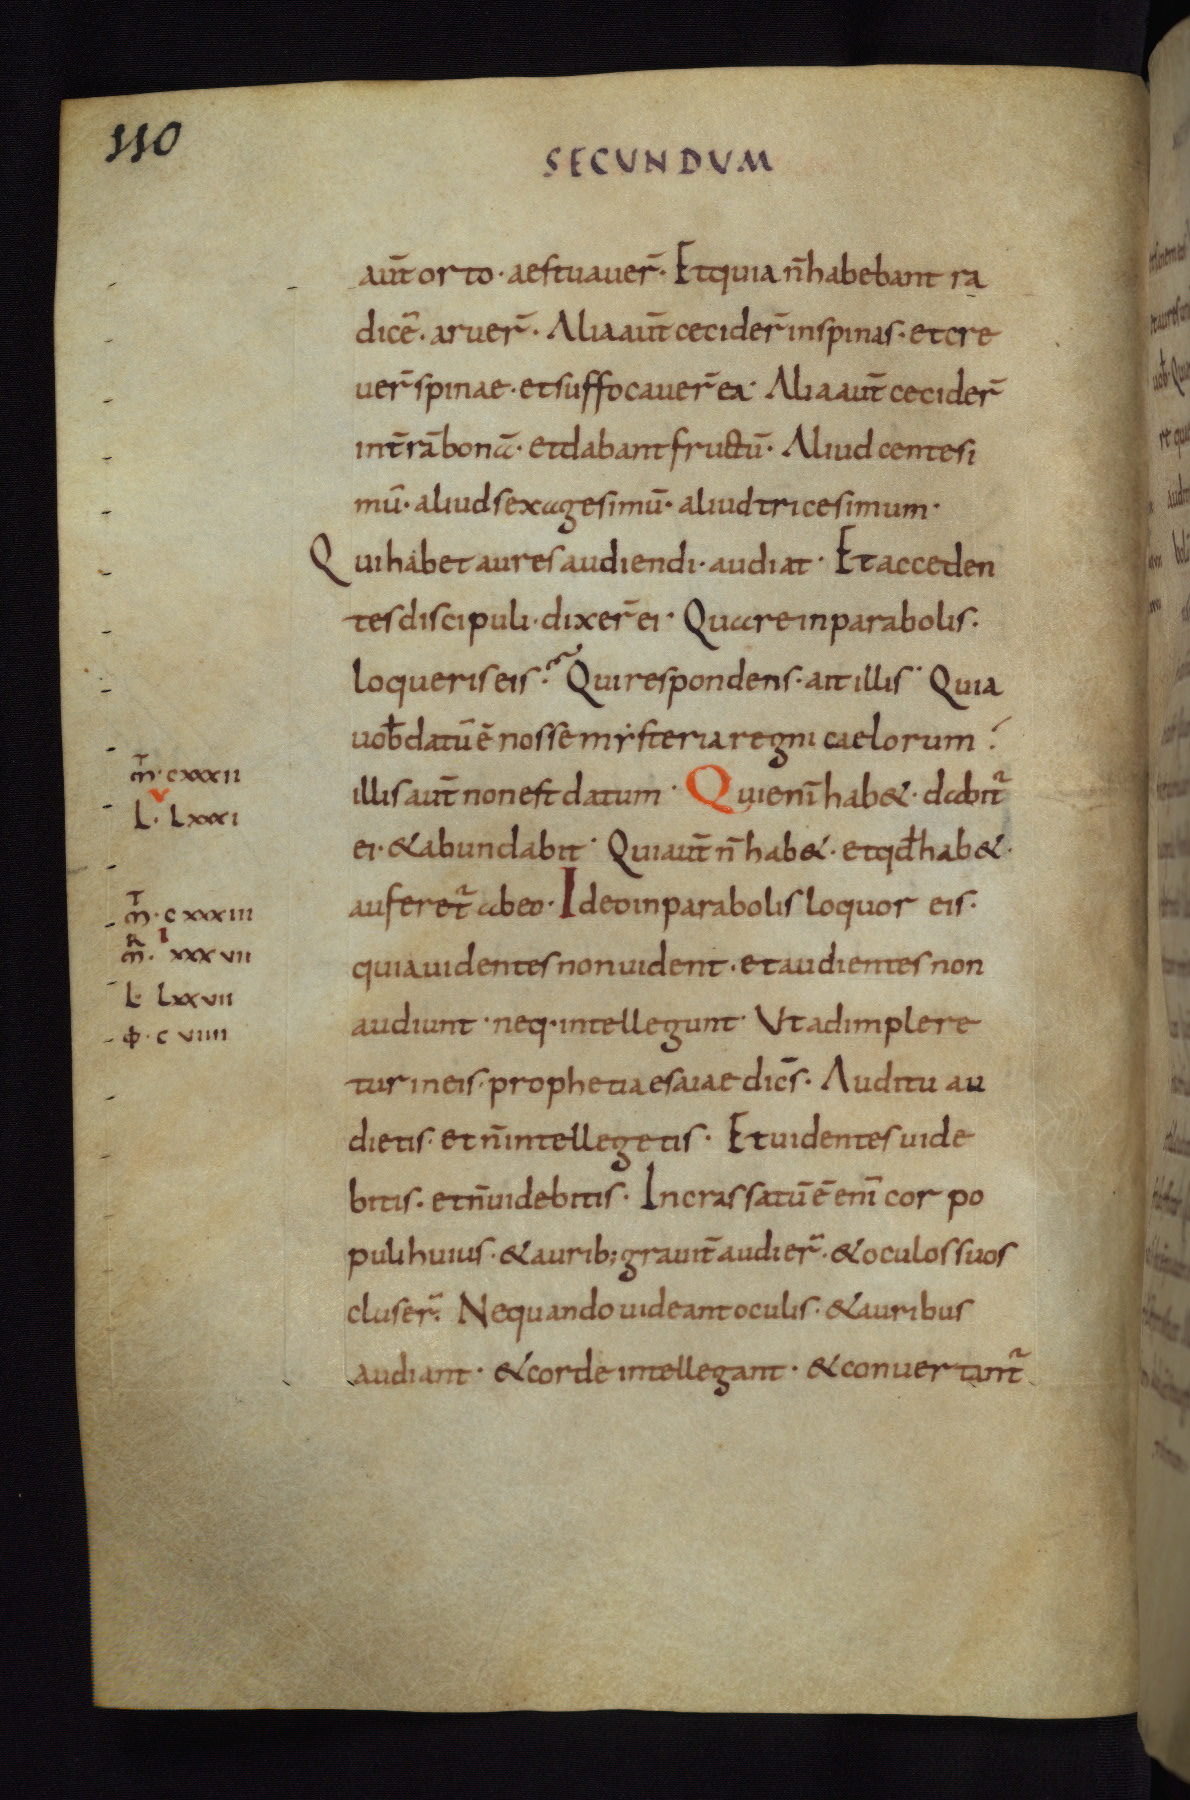 110
SECUNDUM
aut̄ orto · aestuauer̄ · Et quia n̄ habebant ra
dicē · aruer̄ · Alia aut̄ cecider̄ in spinas · et cre
uer̄ spinae · et suffocauer̄ ea · Alia aut̄ cecider̄
in t̄rā bonā · et dabant fructū · Aliud centesi
mū · aliud sexagesimū · aliud tricesimum ·
Qui habet aures audiendi · audiat · Et acceden
tes discipuli · dixer̄ ei · Quare in parabolis ·
loqueris eis? Qui respondens · ait illis · Quia
uob̄ datū ē nosse mẏsteria regni caelorum
illis aut̄ non est datum · Qui eni̅ hab& · dabit̄
ei · & abundabit · Qui aut̄ n̄ hab& · et qd̄ hab& ·
auferet̄ ab eo · Ideo in parabolis loquor eis ·
quia uidentes non uident · et audientes non
audiunt · neq · intellegunt · Vt adimplere
tur in eis · prophetia esaiae dicēs · Auditu au
dietis · et n̄ intellegetis · Et uidentes uide
bitis · et n̄ uidebitis · Incrassatū ē eni̅ cor po
puli huius · & aurib; grauit̄ audier̄ · & oculos suos
cluser̄ · Nequando uideant oculis · & auribus
audiant · & corde intellegant · & conuertant̄
m̄ · cxxxii
L · Lxxxi
m̄ · cxxxiii
m̄ · xxxvii
L · Lxxvii
φ · cviiii